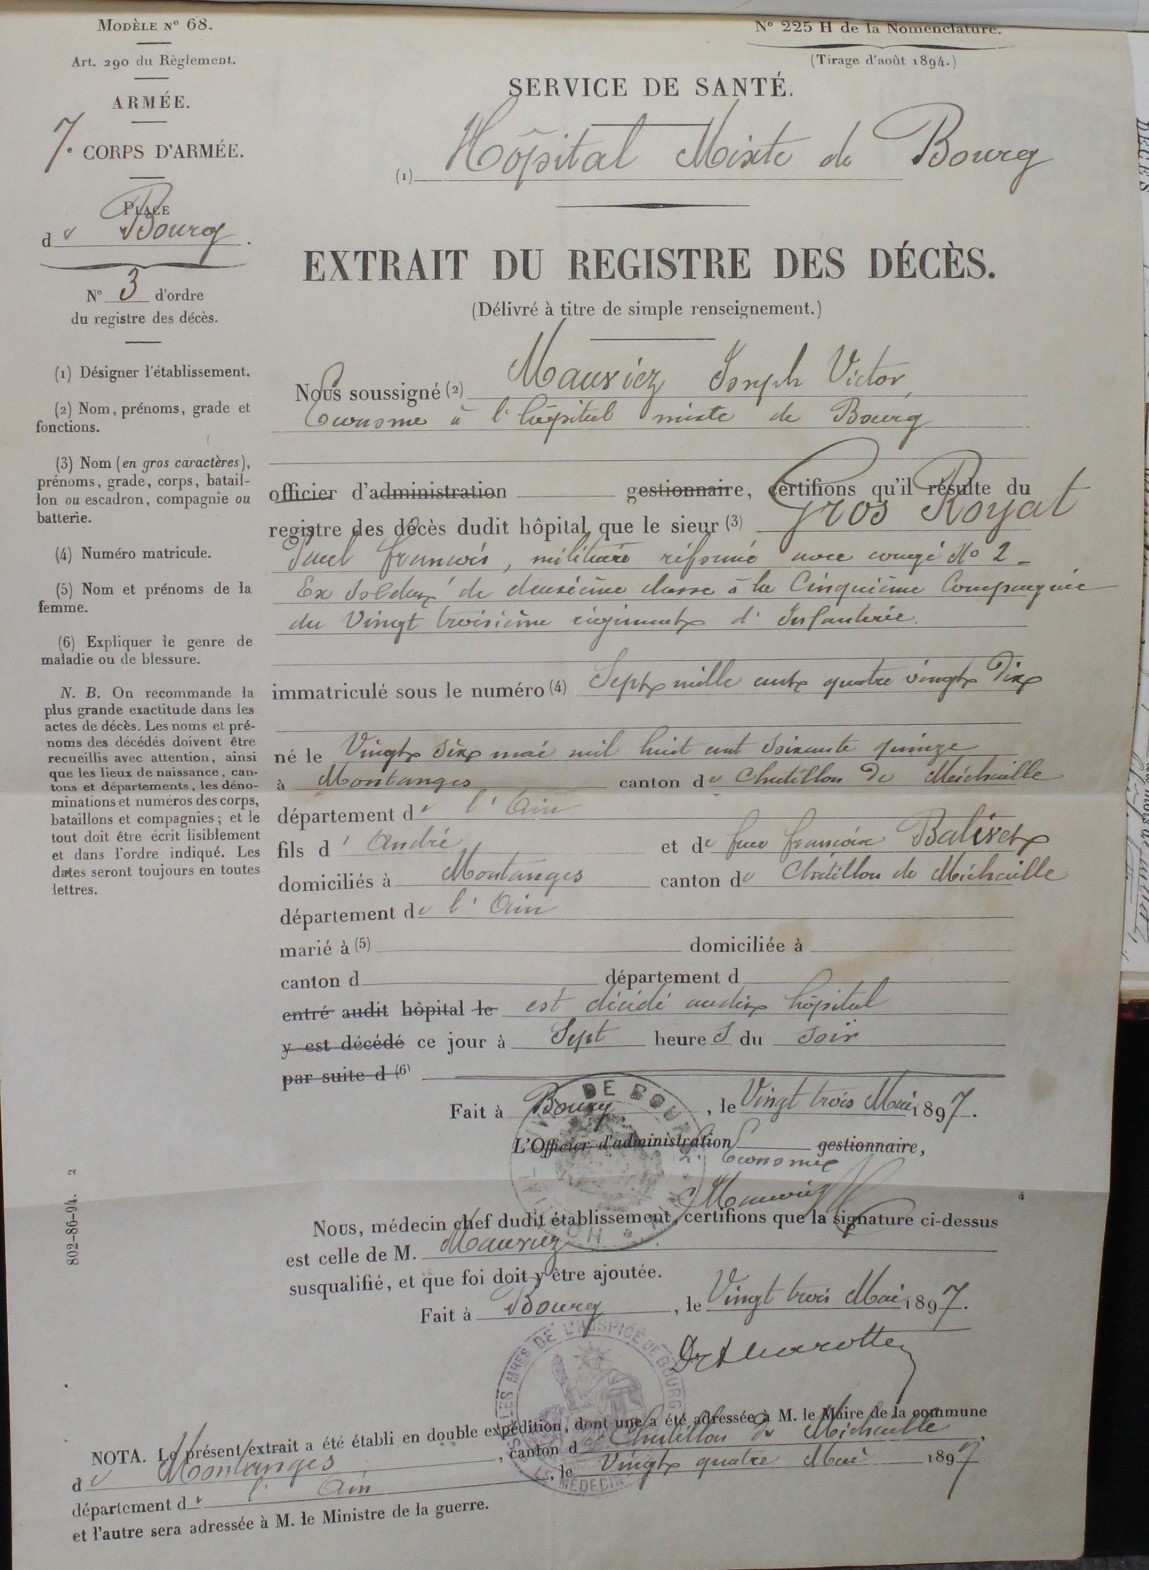 MODÈLE N° 68.
Art. 290 du Règlement.
ARMÉE.
7e CORPS D'ARMÉE.
PLACE
de Bourg.
N° 3 d'ordre
du registre des décès.
(1) Désigner l'établissement.
(2) Nom, prénoms, grade et
fonctions.
(3) Nom (en gros caractères),
prénoms, grade, corps, batail-
lon ou escadron, compagnie ou
batterie.
(4) Numéro matricule.
(5) Nom et prénoms de la
femme.
(6) Expliquer le genre de
maladie ou de blessure.
N. B. On recommande la
plus grande exactitude dans les
actes de décès. Les noms et pré-
noms des décédés doivent être
recueillis avec attention, ainsi
que les lieux de naissance, can-
tons et départements, les déno-
minations et numéros des corps,
bataillons et compagnies; et le
tout doit être écrit lisiblement
et dans l'ordre indiqué. Les
dates seront toujours en toutes
lettres.
802-86-94. 2
N° 225 H de la Nomenclature.
(Tirage d'août 1894.)
SERVICE DE SANTÉ.
(1) Hôpital Mixte de Bourg
EXTRAIT DU REGISTRE DES DÉCÈS.
(Délivré à titre de simple renseignement.)
Nous soussigné (2) Mauriez Joseph Victor,
Econome à l'hôpital mixte de Bourg
officier d'administration gestionnaire, certifions qu'il résulte du
registre des décès dudit hôpital que le sieur (3) Gros Royat
Paul françois, militaire réformé avec congé No 2 -
Ex Soldat de deuxième classe à la Cinquième Compagnie
du Vingt troisième régiment d'Infanterie.
immatriculé sous le numéro (4) Sept mille cent quatre vingt dix
né le Vingt six mai mil huit cent soixante quinze
à Montanges canton de Chatillon de Michaille
département de l'Ain
fils d'André et de feue françoise Balivet
domiciliés à Montanges canton de Châtillon de Michaille
département de l'Ain
marié à (5) domiciliée à
canton d département d
entré audit hôpital le est décédé audit hôpital
y est décédé ce jour à Sept heures du soir
par suite d (6)
Fait à Bourg, le Vingt trois Mai 1897.
L'Officier d'administration gestionnaire,
L'Econome
Mauriez
Nous, médecin chef dudit établissement, certifions que la signature ci-dessus
est celle de M. Mauriez
susqualifié, et que foi doit y être ajoutée.
Fait à Bourg, le Vingt trois Mai 1897.
DE L'HOSPICE DE BOURG
NOTA. Le présent extrait a été établi en double expédition, dont une a été adressée à M. le Maire de la commune
de Montanges, canton de Chatillon de Michaille,
département de l'Ain, le Vingt quatre Mai 1897
et l'autre sera adressée à M. le Ministre de la guerre.
DÉCÈS